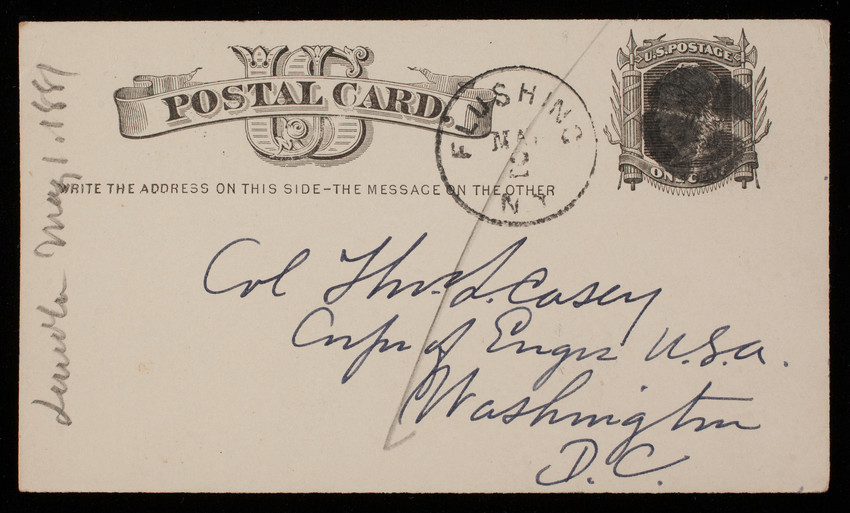 US
POSTAL CARD
WRITE THE ADDRESS ON THIS SIDE - THE MESSAGE ON THE OTHER
FLUSHING
N.Y.
U.S. POSTAGE
ONE CENT
Col Thos. L. Casey
Corps of Engrs U.S.A.
Washington
D.C.
May 1. 1881